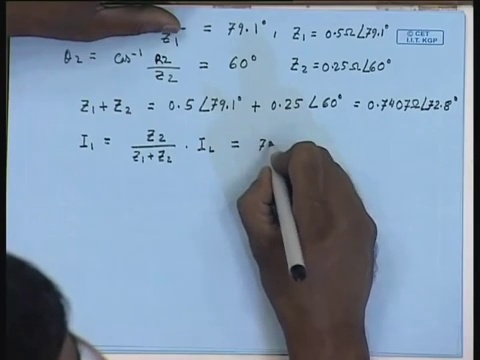 Z1 = 79.1°, Z1 = 0.5Ω∠79.1°
© CET
I.I.T. KGP
θ2 = Cos⁻¹ R2/Z2 = 60° Z2 = 0.25Ω∠60°
Z1 + Z2 = 0.5∠79.1° + 0.25∠60° = 0.7407Ω∠72.8°
I1 = Z2/(Z1+Z2) . IL = 7